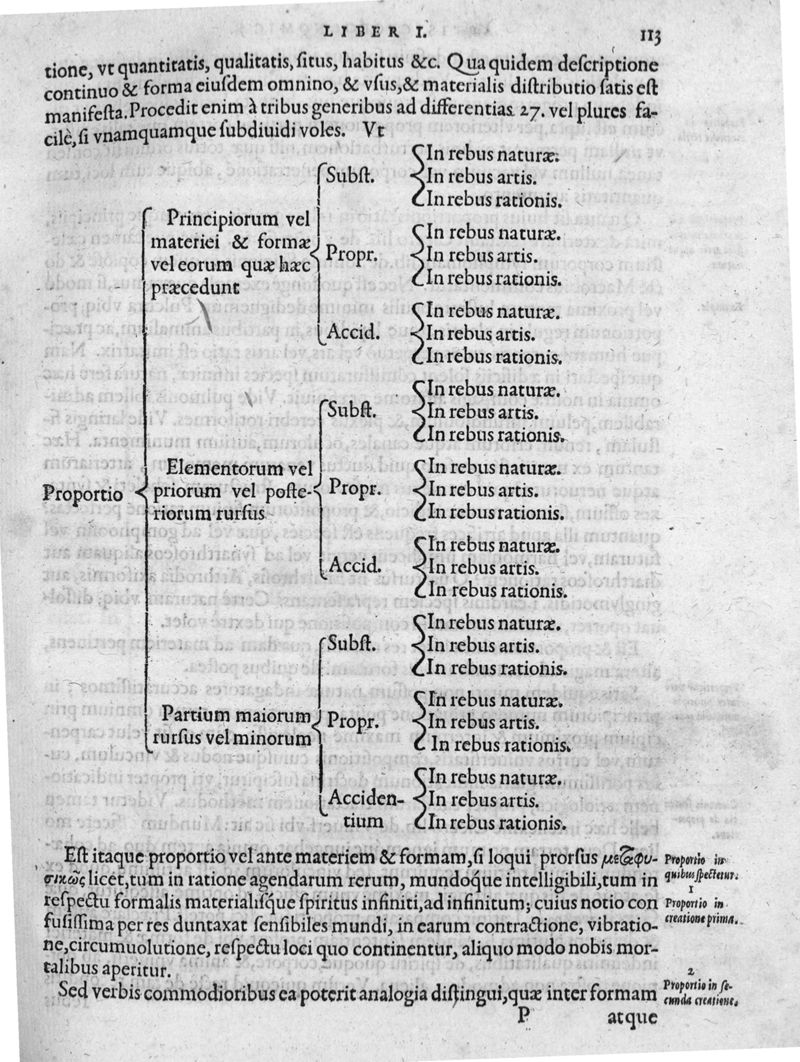 LIBER I. 113
tione, vt quantitatis, qualitatis, ſitus, habitus &c. Qua quidem deſcriptione
continuo & forma eiuſdem omnino, & vſus, & materialis diſtributio ſatis eſt
manifeſta. Procedit enim à tribus generibus ad differentias 27. vel plures fa-
cilè, ſi vnamquamque ſubdiuidi voles. Vt
Proportio
Principiorum vel
materiei & formæ
vel eorum quæ hæc
præcedunt
Subſt.
In rebus naturæ.
In rebus artis.
In rebus rationis.
Propr.
In rebus naturæ.
In rebus artis.
In rebus rationis.
Accid.
In rebus naturæ.
In rebus artis.
In rebus rationis.
Elementorum vel
priorum vel poſte-
riorum rurſus
Subſt.
In rebus naturæ.
In rebus artis.
In rebus rationis.
Propr.
In rebus naturæ.
In rebus artis.
In rebus rationis.
Accid.
In rebus naturæ.
In rebus artis.
In rebus rationis.
Partium maiorum
rurſus vel minorum
Subſt.
In rebus naturæ.
In rebus artis.
In rebus rationis.
Propr.
In rebus naturæ.
In rebus artis.
In rebus rationis.
Acciden-
tium
In rebus naturæ.
In rebus artis.
In rebus rationis.
Eſt itaque proportio vel ante materiem & formam, ſi loqui prorſus μεταφυ-
σικῶς licet, tum in ratione agendarum rerum, mundoq́ue intelligibili, tum in
reſpectu formalis materialiſq́ue ſpiritus infiniti, ad infinitum; cuius notio con
fuſiſſima per res duntaxat ſenſibiles mundi, in earum contractione, vibratio-
ne, circumuolutione, reſpectu loci quo continentur, aliquo modo nobis mor-
talibus aperitur.
Sed verbis commodioribus ea poterit analogia diſtingui, quæ inter formam
P atque
Proportio in
quibus ſpectetur.
1
Proportio in
creatione prima.
2
Proportio in ſe-
cunda creatione.